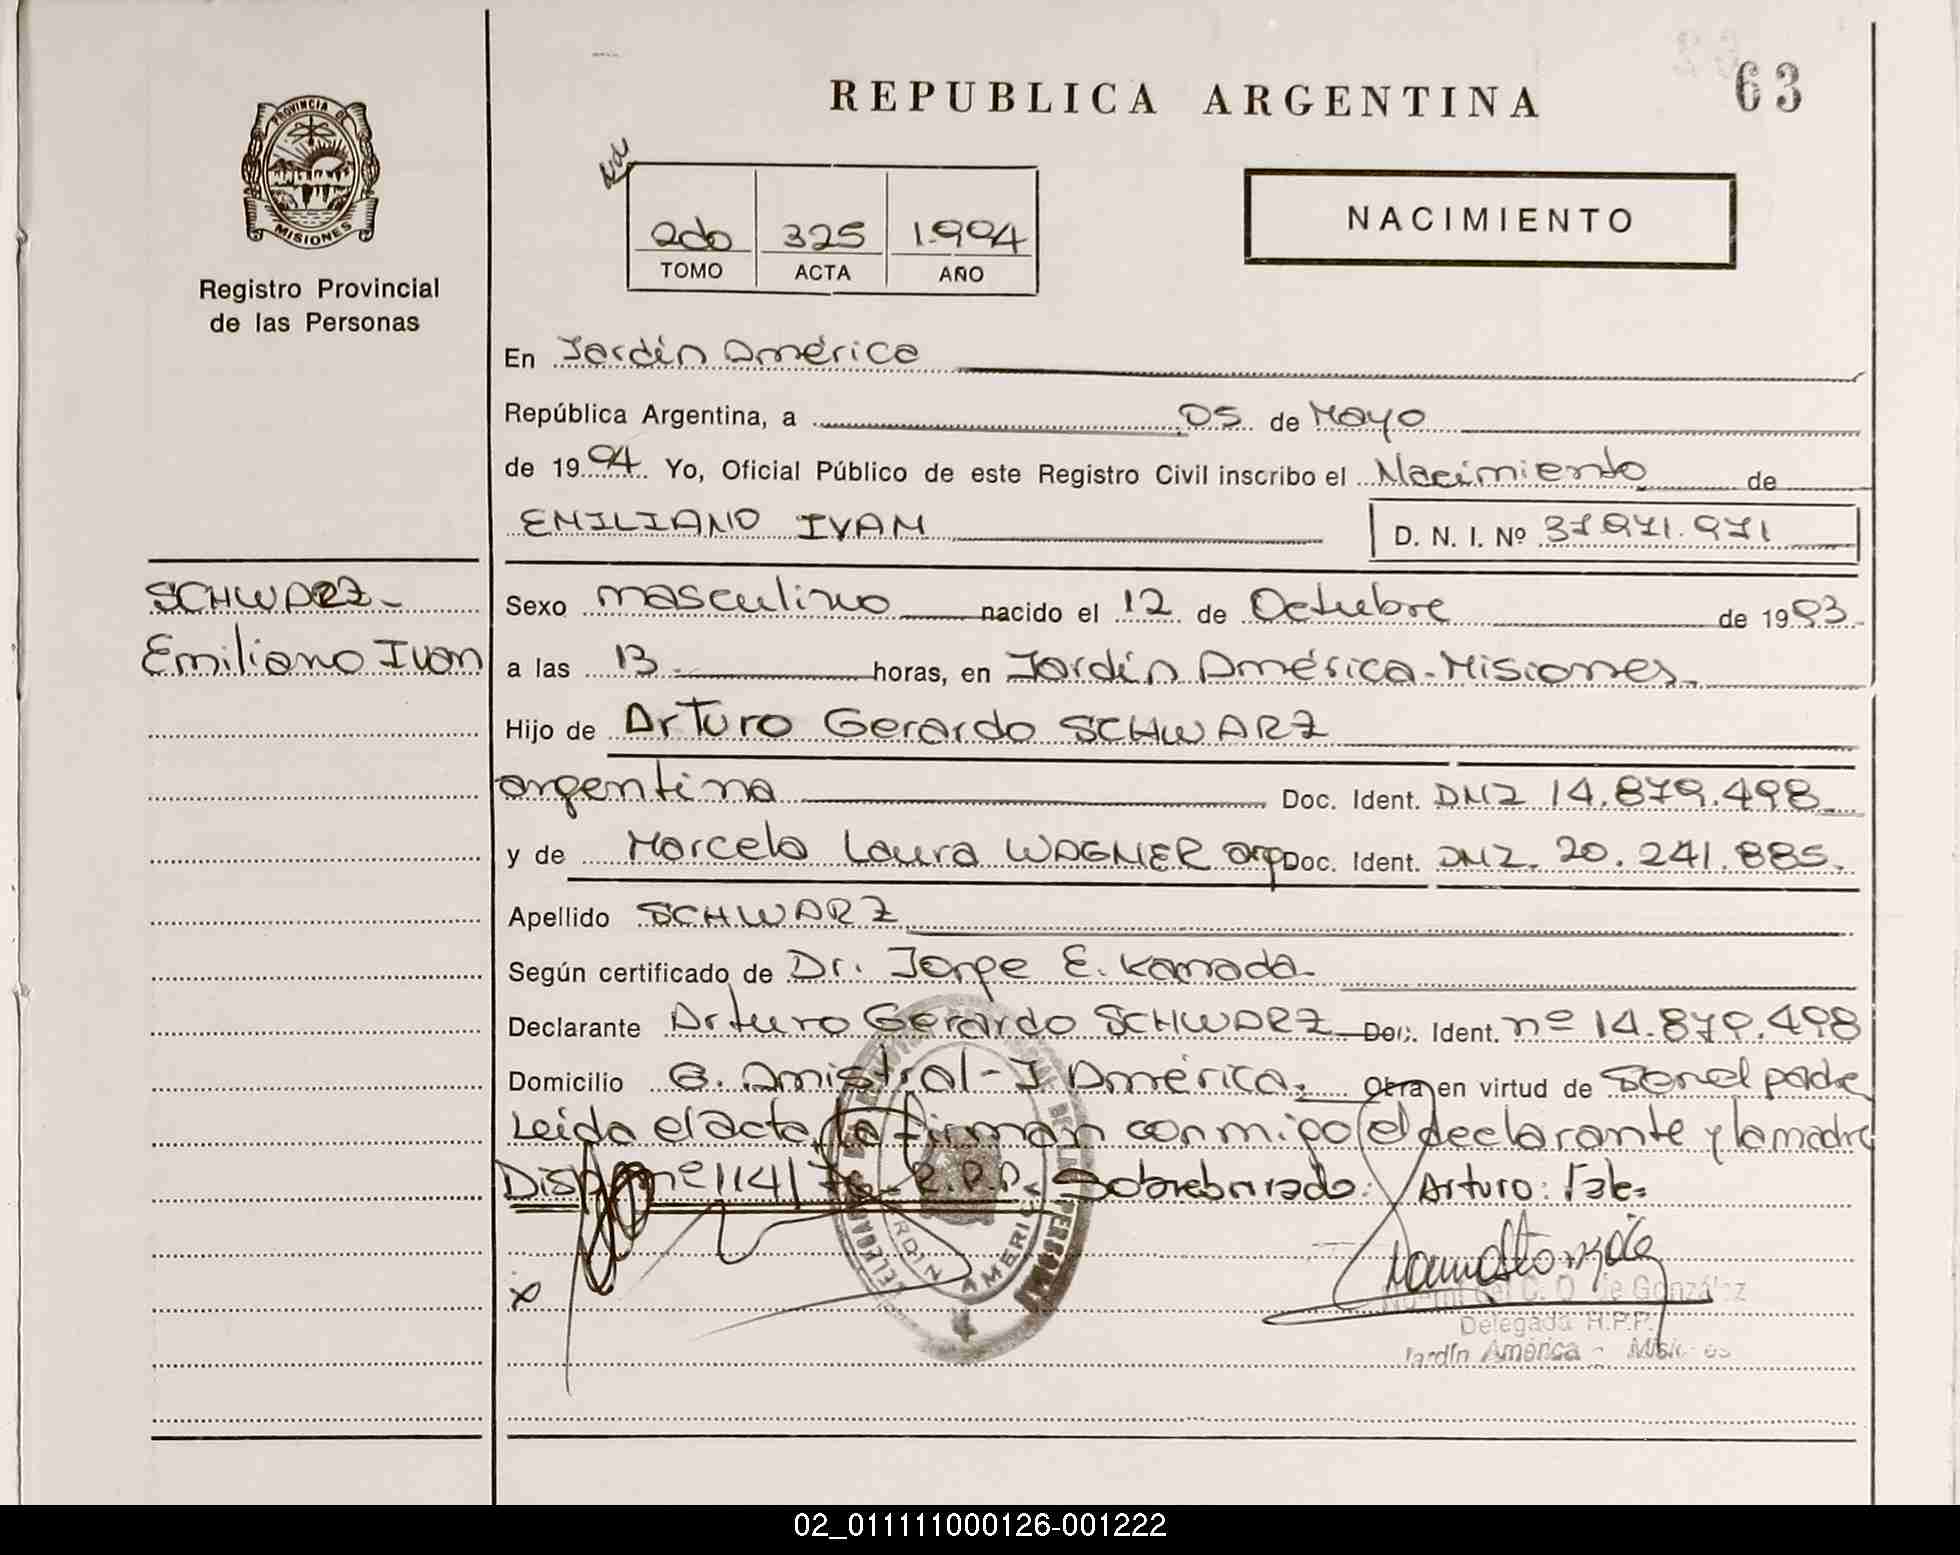 63
REPUBLICA ARGENTINA
PROVINCIA DE
MISIONES
Registro Provincial
de las Personas
2do 325 1.994
TOMO ACTA AÑO
NACIMIENTO
En Jardín América
República Argentina, a 05 de Mayo
de 1994 Yo, Oficial Público de este Registro Civil inscribo el Nacimiento de
EMILIANO IVAN D. N. I. Nº 37.971.971
SCHWARZ
Emiliano Ivan
Sexo masculino nacido el 12 de Octubre de 1993
a las 13 horas, en Jardín América-Misiones
Hijo de Arturo Gerardo SCHWARZ
argentina Doc. Ident. DNI 14.879.498
y de Marcela Laura WAGNER arg Doc. Ident. DNI. 20.241.885.
Apellido SCHWARZ
Según certificado de Dr. Jorge E. Kamada
Declarante Arturo Gerardo SCHWARZ Doc. Ident. nº 14.879.498
Domicilio G. Amistral - J América. Obra en virtud de ser el padre
Leida el acta la firman conmigo el declarante y la madre
Disp nº 114/76 R.P.P. Sobreborrado: Arturo: Vale
JARDIN AMERICA
de González
Delegada R.P.P.
Jardín América - Misiones
02_011111000126-001222